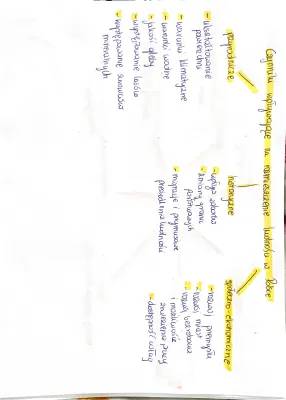 Czynniki wpływające na rozmieszczenie ludności w Polsce
przyrodnicze
- ukształtowanie
powierzchni
- warunki klimatyczne
- warunki wodne
- jakość gleby
- występowanie lasów
- występowanie surowców
mineralnych
historyczne
- wpływ zaborów
- zmiany granic
państwowych
- migracje i przymusowe
przesiedlenia ludności
społeczno-ekonomiczne
- rozwój przemysłu
- rozwój miast
- rozwój
i możliwość
znalezienia pracy
- dostępność usług